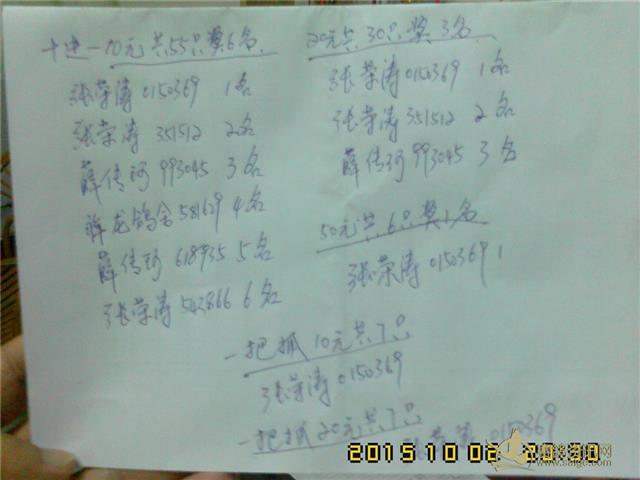 十进一10元共55只奖6名
张荣涛 0150369 1名
张荣涛 351512 2名
薛传珂 993045 3名
龙鸽舍 581629 4名
薛传珂 618935 5名
张荣涛 543866 6名
20元共30只奖3名
张荣涛 0150369 1名
张荣涛 351512 2名
薛传珂 993045 3名
50元共6只奖1名
张荣涛 0150369 1
一把抓10元共7只
张荣涛 0150369
一把抓20元共7只
荣涛 0150369
2015 10 02 20:30
www.saige.com